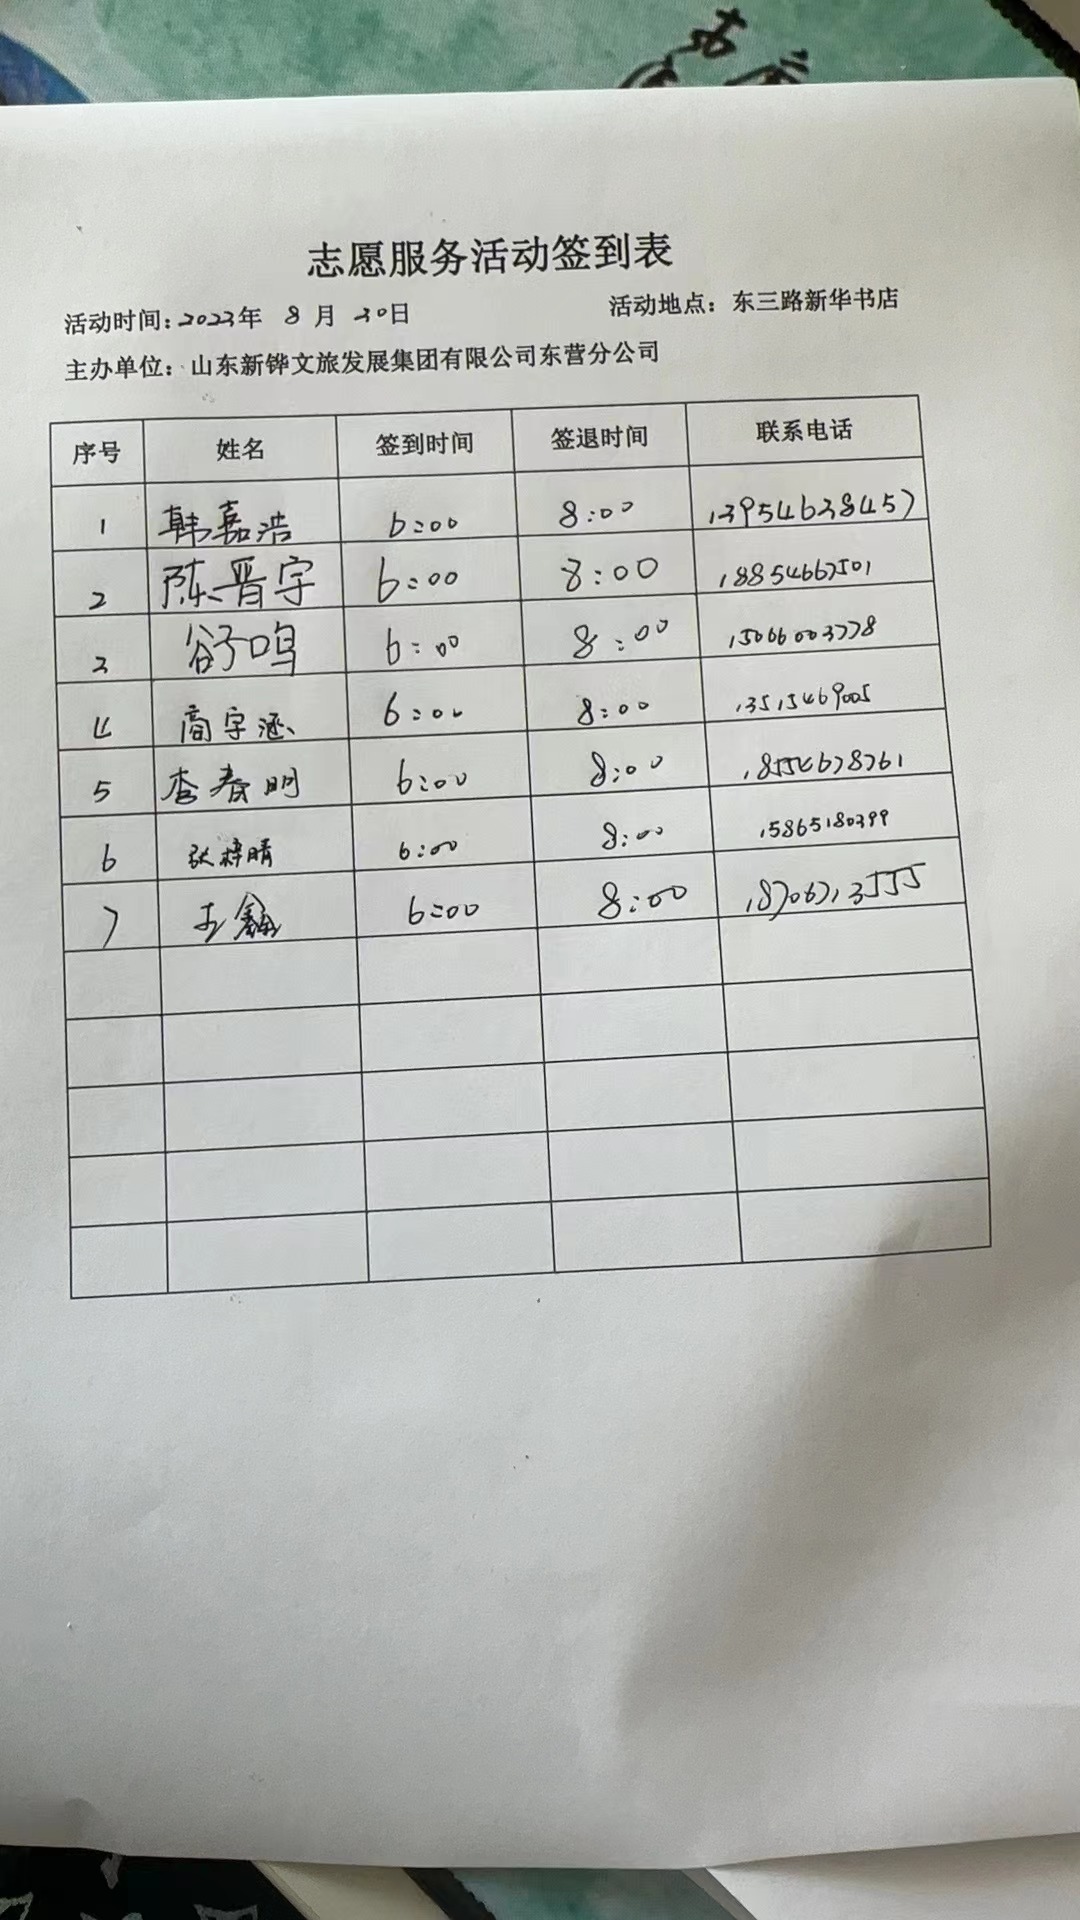 志愿服务活动签到表
活动时间：2023年 8月 30日 活动地点：东三路新华书店
主办单位：山东新铧文旅发展集团有限公司东营分公司
序号 姓名 签到时间 签退时间 联系电话
1 韩嘉浩 6:00 8:00 13954638457
2 陈晋宇 6:00 8:00
3 谷子鸣 6:00 8:00 15066003778
4 商宇涵 6:00 8:00 13515469005
5 李春明 6:00 8:00 18554678761
6 张梓晴 6:00 8:00 15865180399
7 王鑫 6:00 8:00 18706713555